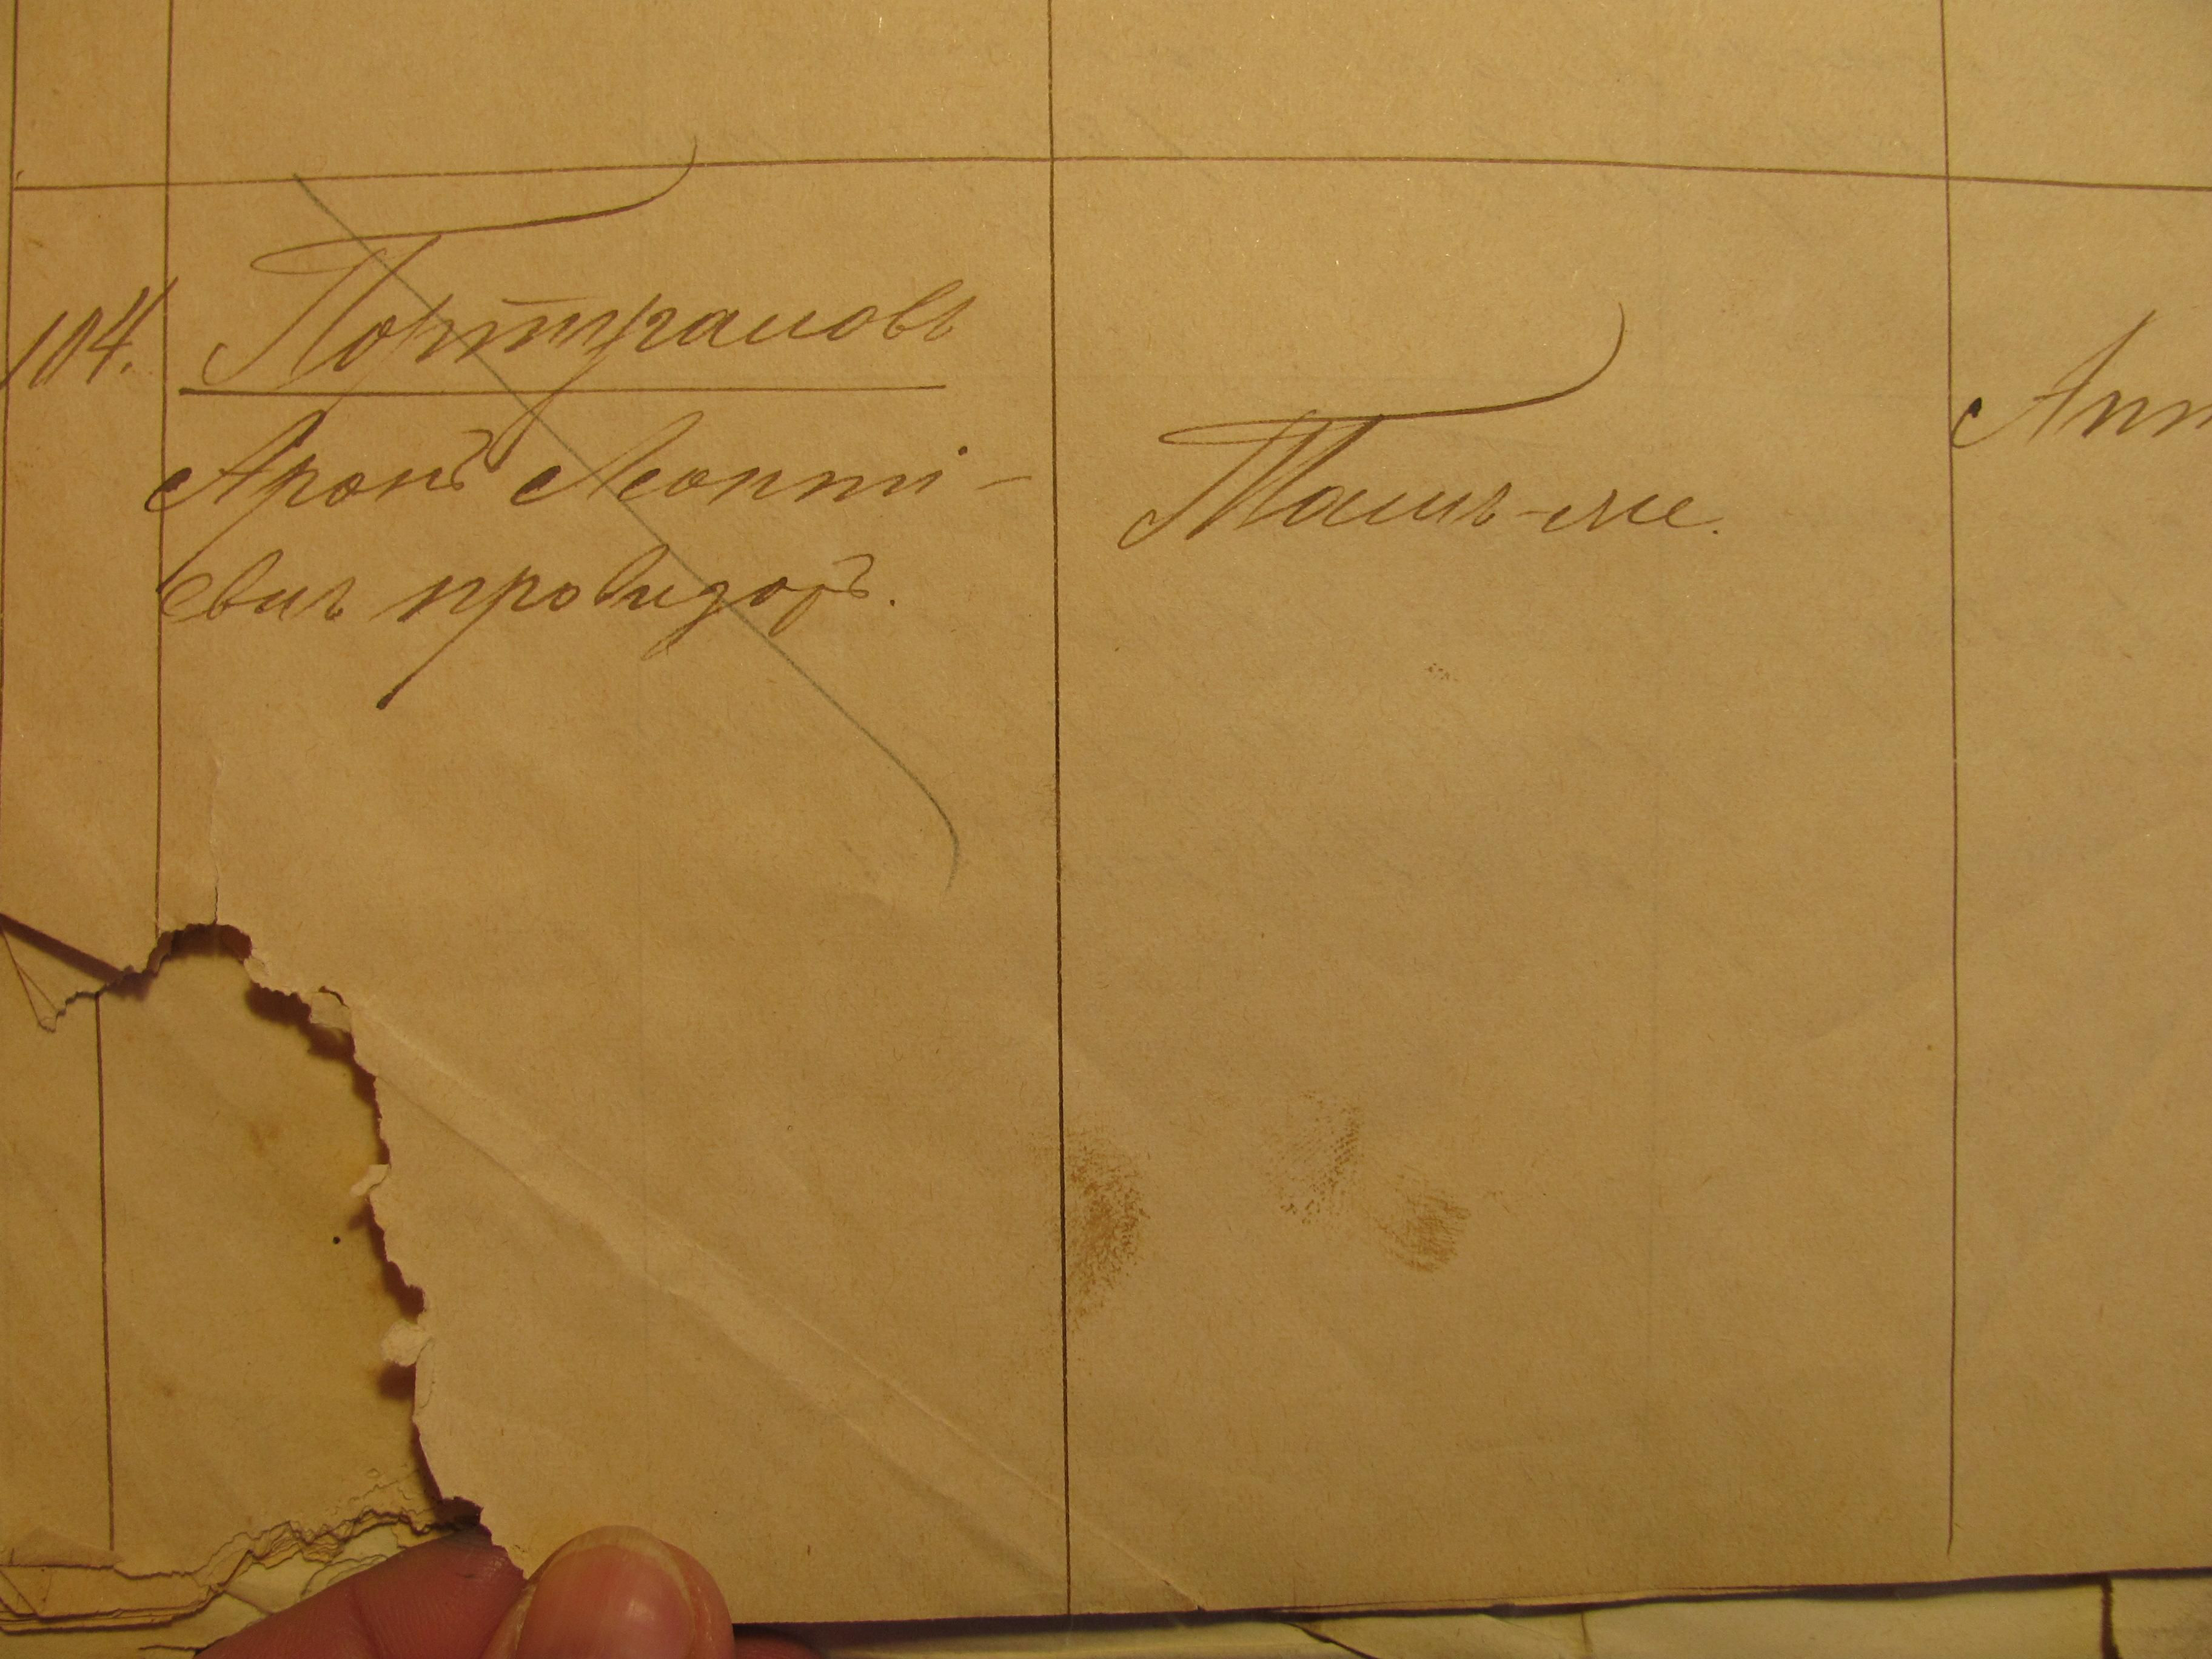 104.
Портрановъ
Аронъ Леонті-
евичъ провизоръ.
Тамъ-же.
Апт